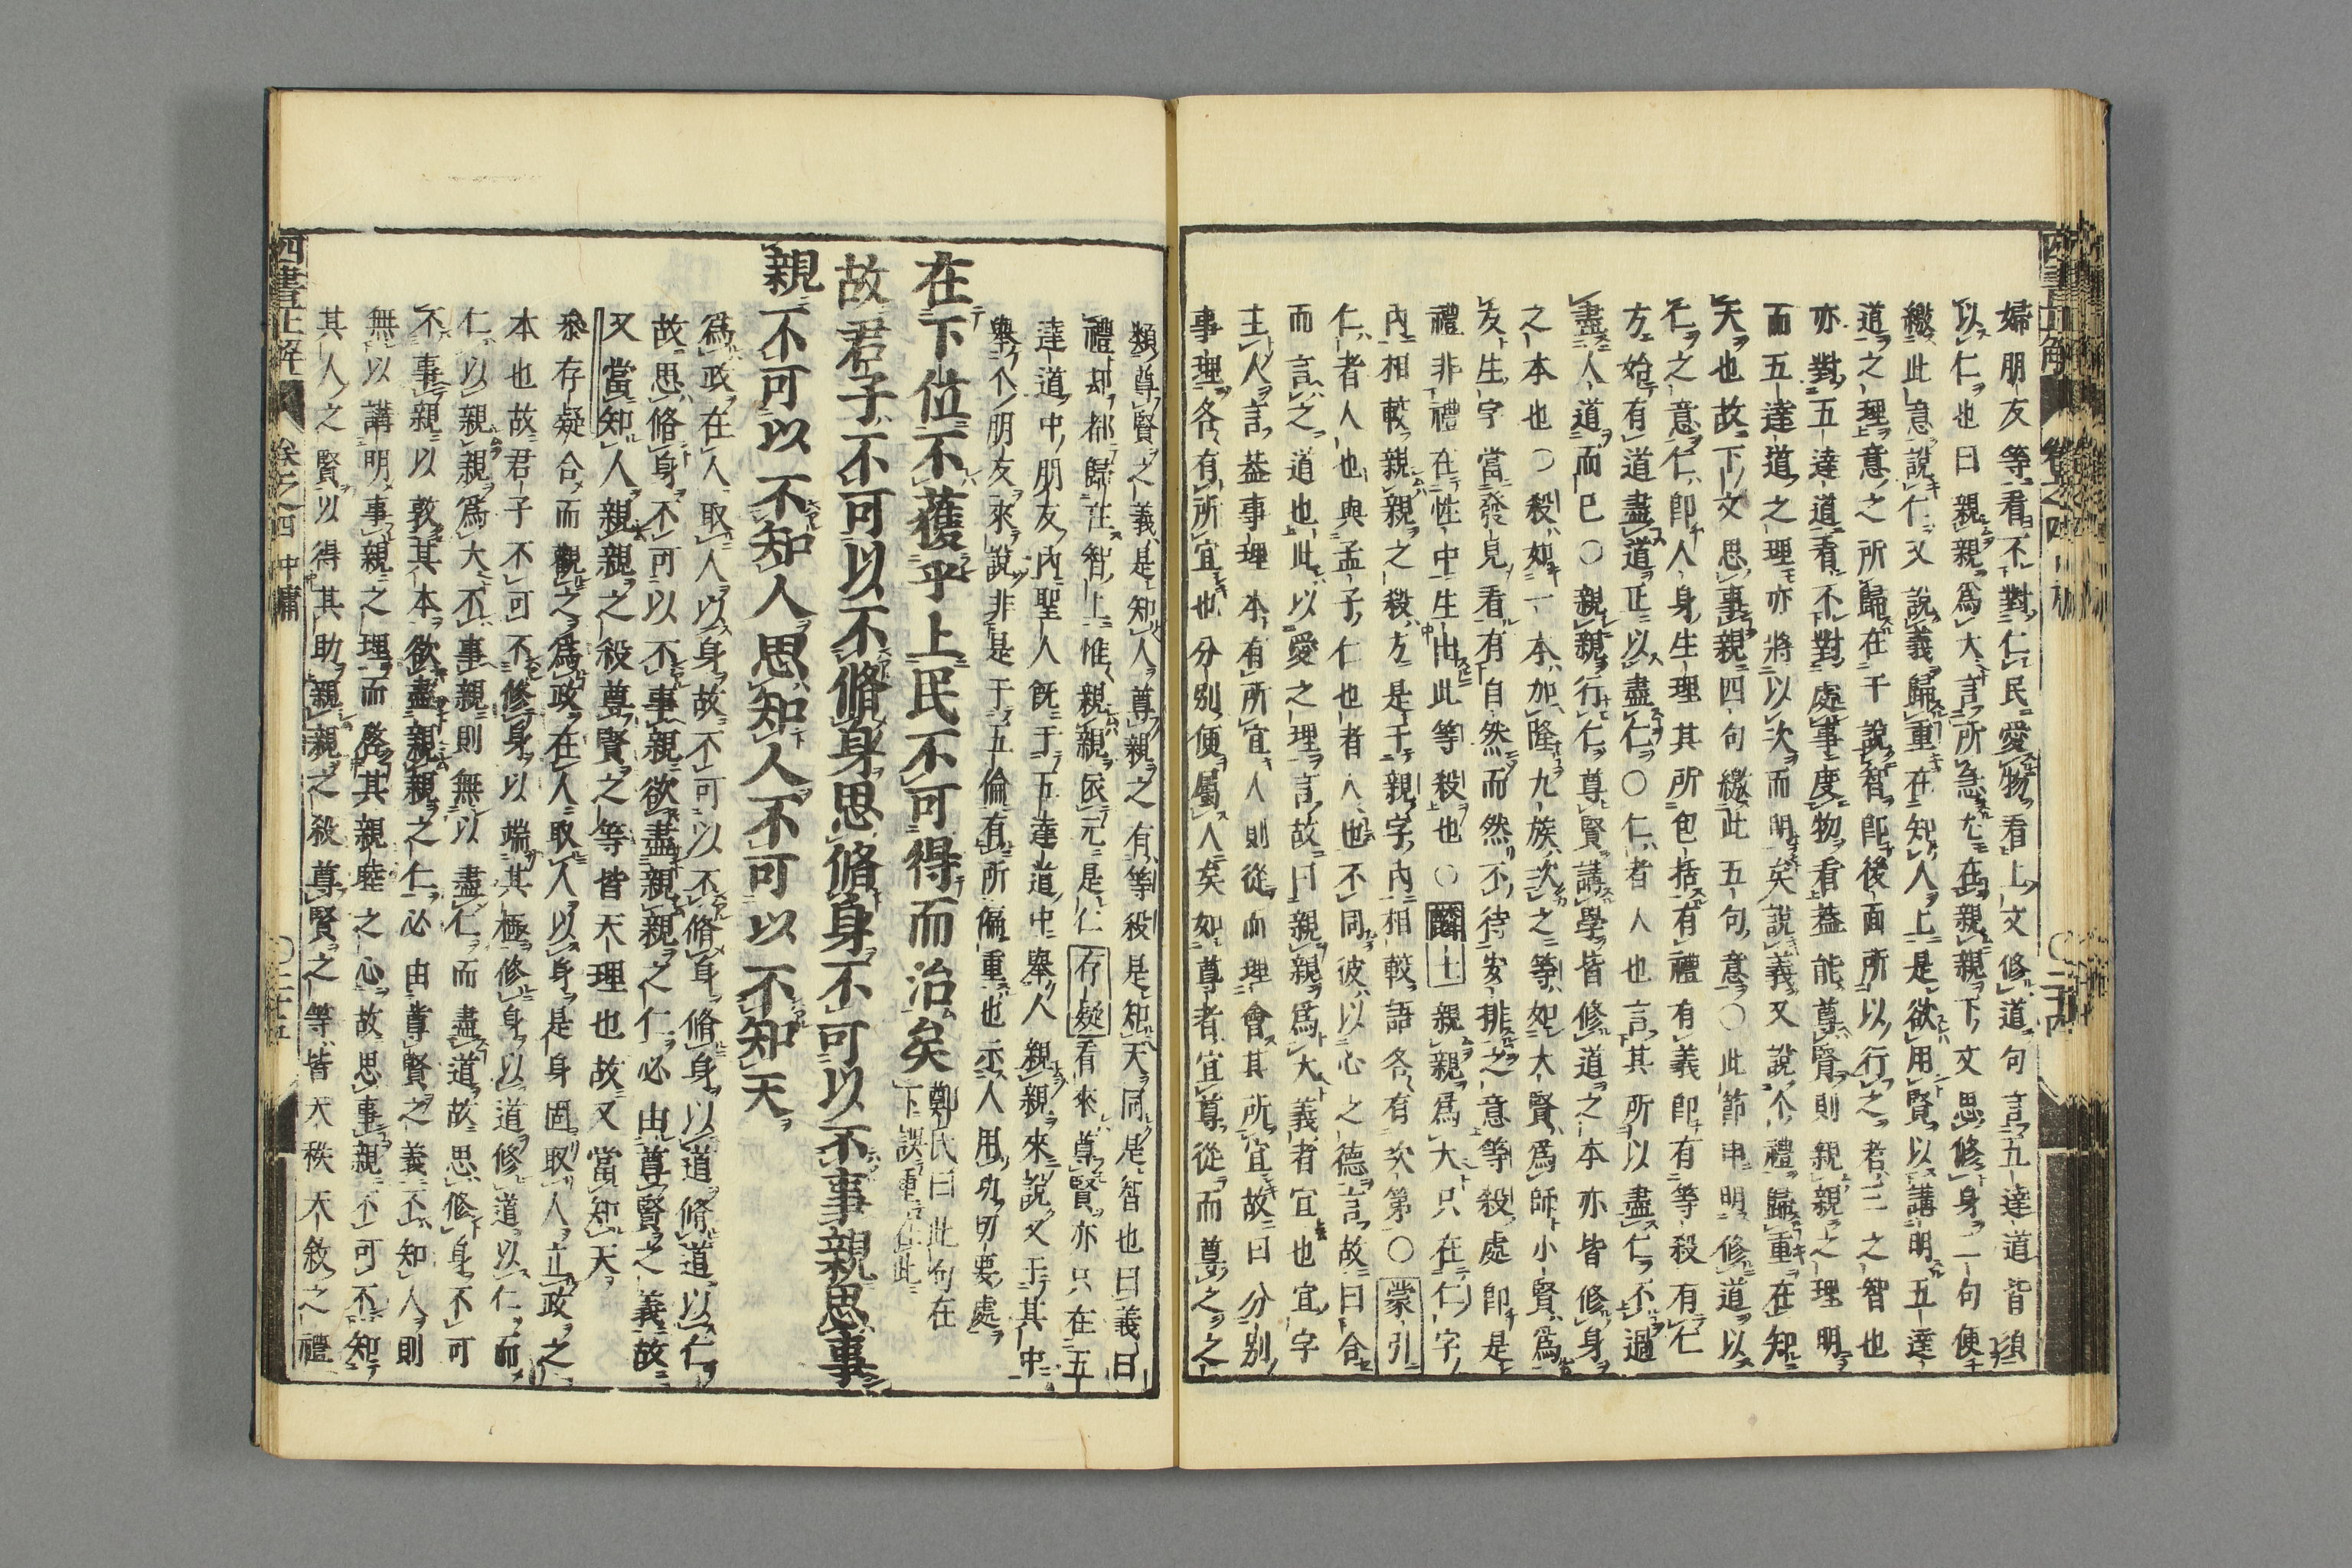 婦朋友等看不對仁民愛物看上文修道句言五達道皆須
以仁也曰親親爲大言所急尤在親親下文思修身一句便
繳此意說仁又說義歸重在知人上是欲用賢以講明五達
道之理意之所歸在于說智卽後面所以行之者三之智也
亦對五達道看不對處事度物看葢能尊賢則親親之理明
而五達道之理亦將以次而明矣說義又說个禮歸重在知
天也故下文思事親四句繳此五句意○此節申明修道以
仁之意仁卽人身生理其所包括有禮有義卽有等殺有仁
方始有道盡道正以盡仁○仁者人也言其所以盡仁不過
盡人道而已○親親行仁尊賢講學皆修道之本亦皆修身
之本也○殺如一本加隆九族次之等如大賢爲師小賢爲
友生字當發見看有自然而然不待安排之意等殺處卽是
禮非禮在性中生出此等殺也○麟士親親爲大只在仁字
內相較親親之殺方是于親字內相較語各有次第○蒙引
仁者人也與孟子仁也者人也不同彼以心之德言故曰合
而言之道也此以愛之理言故曰親親爲大義者宜也宜字
主人言葢事理本有所宜人則從而理會其所宜故曰分別
事理各有所宜也分別便屬人矣如尊者宜尊從而尊之之
類尊賢之義是知人尊親之有等殺是知天同是智也曰義曰
禮却都歸在智上惟親親依元是仁存疑看來尊賢亦只在五
達道中朋友內聖人旣于五達道中舉人親親來說又于其中
舉个朋友來說非是于五倫有所偏重也示人用功切要處
在下位不獲乎上民不可得而治矣鄭氏曰此句在
下誤重在此
故君子不可以不脩身思脩身不可以不事親思事
親不可以不知人思知人不可以不知天
爲政在人取人以身故不可以不脩身脩身以道脩道以仁
故思脩身不可以不事親欲盡親親之仁必由尊賢之義故
又當知人親親之殺尊賢之等皆天理也故又當知天
叅存疑合而觀之爲政在人取人以身是身固取人立政之
本也故君子不可不修身以端其極修身以道修道以仁而
仁以親親爲大不事親則無以盡仁而盡道故思修身不可
不事親以敦其本欲盡親親之仁必由尊賢之義不知人則
無以講明事親之理而啓其親睦之心故思事親不可不知
其人之賢以得其助親親之殺尊賢之等皆天秩天敘之禮
四書正解 卷之四 中庸 ○二十五